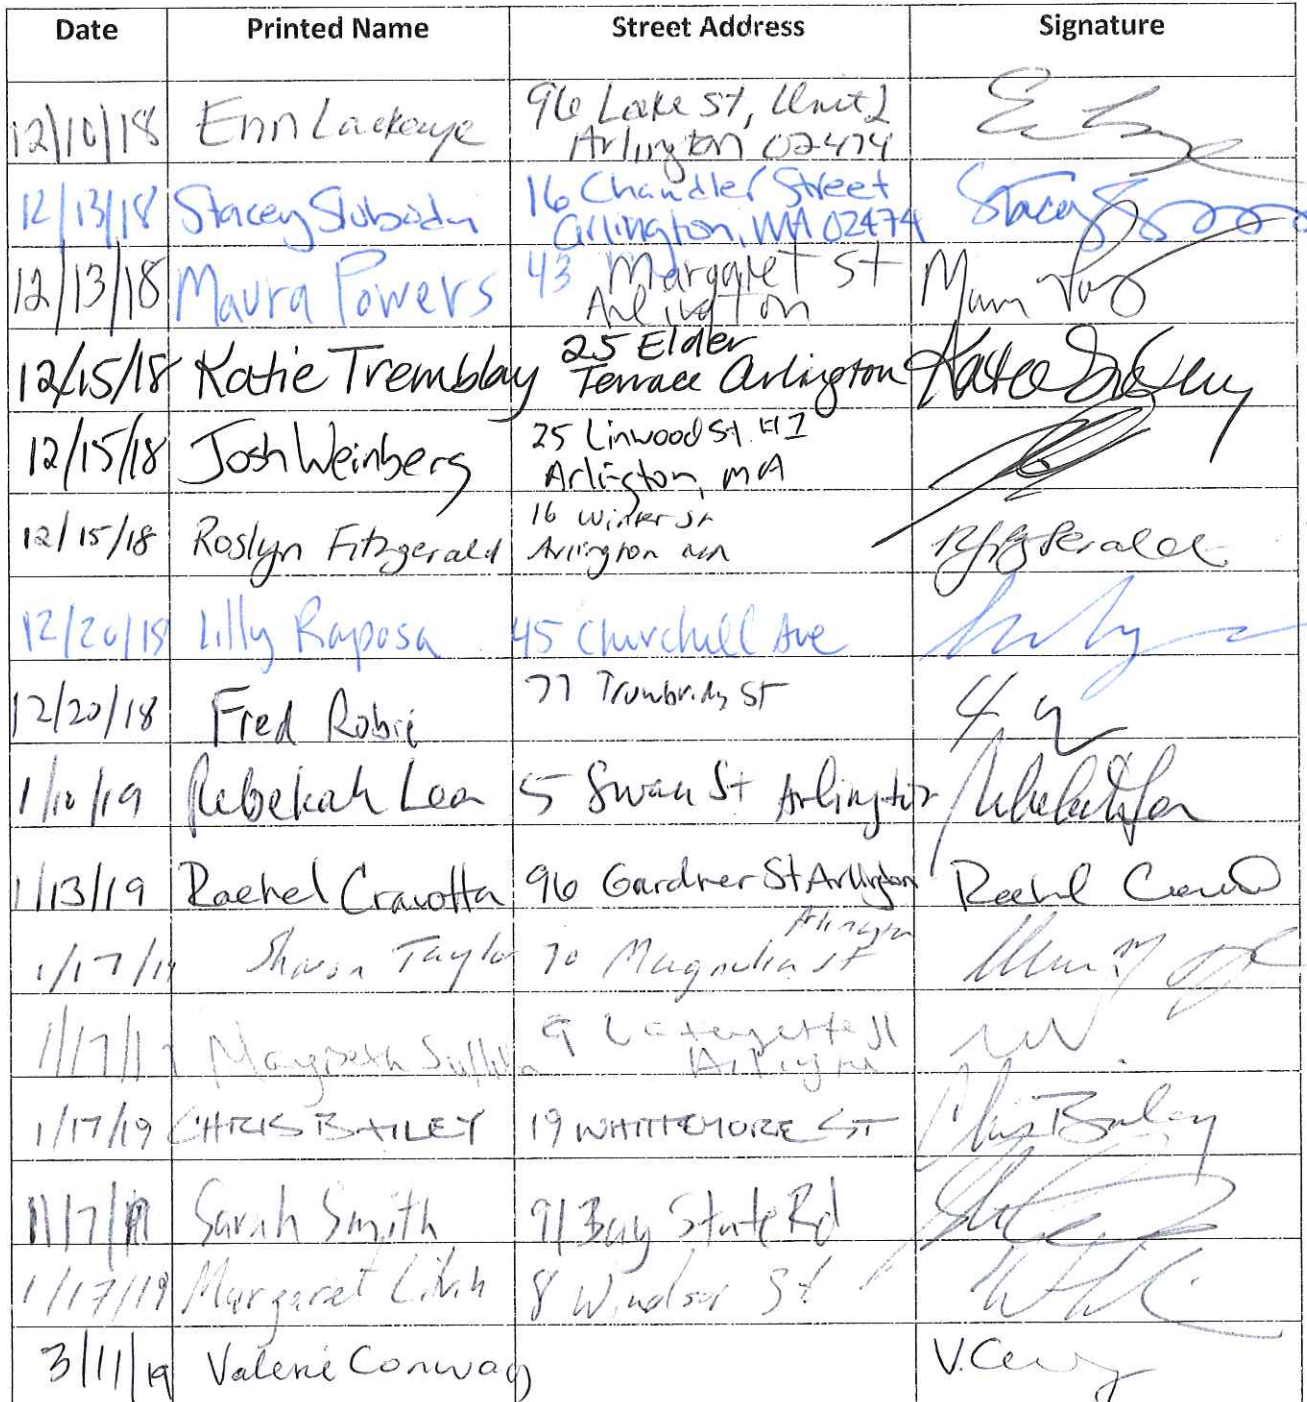 Date Printed Name Street Address Signature
12/10/18 Erin Lackaye 96 Lake St, Unit 2
Arlington 02474
12/13/18 Stacey Slobodn 16 Chandler Street Stacey
Arlington, MA 02474
12/13/18 Maura Powers 43 Margaret St
Arlington
12/15/18 Katie Tremblay 25 Elder Katie
Terrace Arlington
12/15/18 Josh Weinberg 25 Linwood St #1
Arlington, MA
12/15/18 Roslyn Fitzgerald 16 Winter St RFitzgerald
Arlington MA
12/20/18 Lilly Raposa 45 Churchill Ave
12/20/18 Fred Robie 77 Trowbridg St
1/10/19 Rebekah 5 Swan St Arlington
1/13/19 Rachel Cravotta 96 Gardner St Arlington Rachel
1/17/19 Sharon Taylor 70 Magnolia St
Arlington
1/17/19 Marybeth 9 Lafayette St
Arlington
1/17/19 CHRIS BAILEY 19 WHITTEMORE ST Chris Bailey
1/17/19 Sarah Smith 91 Bay State Rd
1/17/19 Margaret 8 Windsor St
3/11/19 Valerie Conway V.